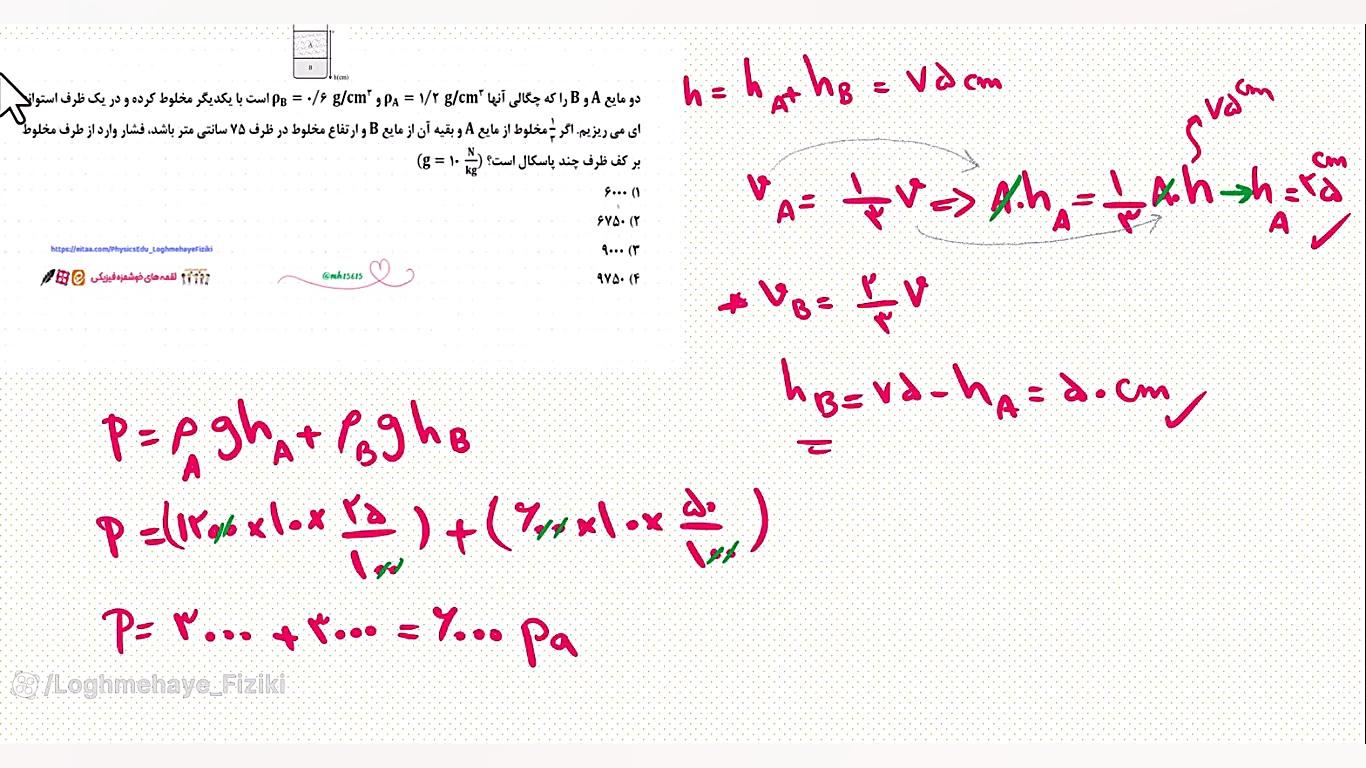 A
B
h(cm)
دو مایع A و B را که چگالی آنها ρA = ۱/۲ g/cm³ و ρB = ۰/۶ g/cm³ است با یکدیگر مخلوط کرده و در یک ظرف استوانه
ای می ریزیم. اگر ۱/۳ مخلوط از مایع A و بقیه آن از مایع B و ارتفاع مخلوط در ظرف ۷۵ سانتی متر باشد، فشار وارد از طرف مخلوط
بر کف ظرف چند پاسکال است؟ (g = ۱۰ N/kg)
۱) ۶۰۰۰
۲) ۶۷۵۰
۳) ۹۰۰۰
۴) ۹۷۵۰
https://eitaa.com/PhysicsEdu_LoghmehayeFiziki
لقمه های خوشمزه فیزیکی
@mh15615
h = hA + hB = ۷۵ cm
۷۵ cm
VA = ۱/۳ V => A.hA = ۱/۳ A.h → hA = ۲۵ cm
* VB = ۲/۳ V
hB = ۷۵ - hA = ۵۰ cm
P = ρA g hA + ρB g hB
P = (۱۲۰۰ × ۱۰ × ۲۵/۱۰۰) + (۶۰۰ × ۱۰ × ۵۰/۱۰۰)
P = ۳۰۰۰ + ۳۰۰۰ = ۶۰۰۰ Pa
/Loghmehaye_Fiziki